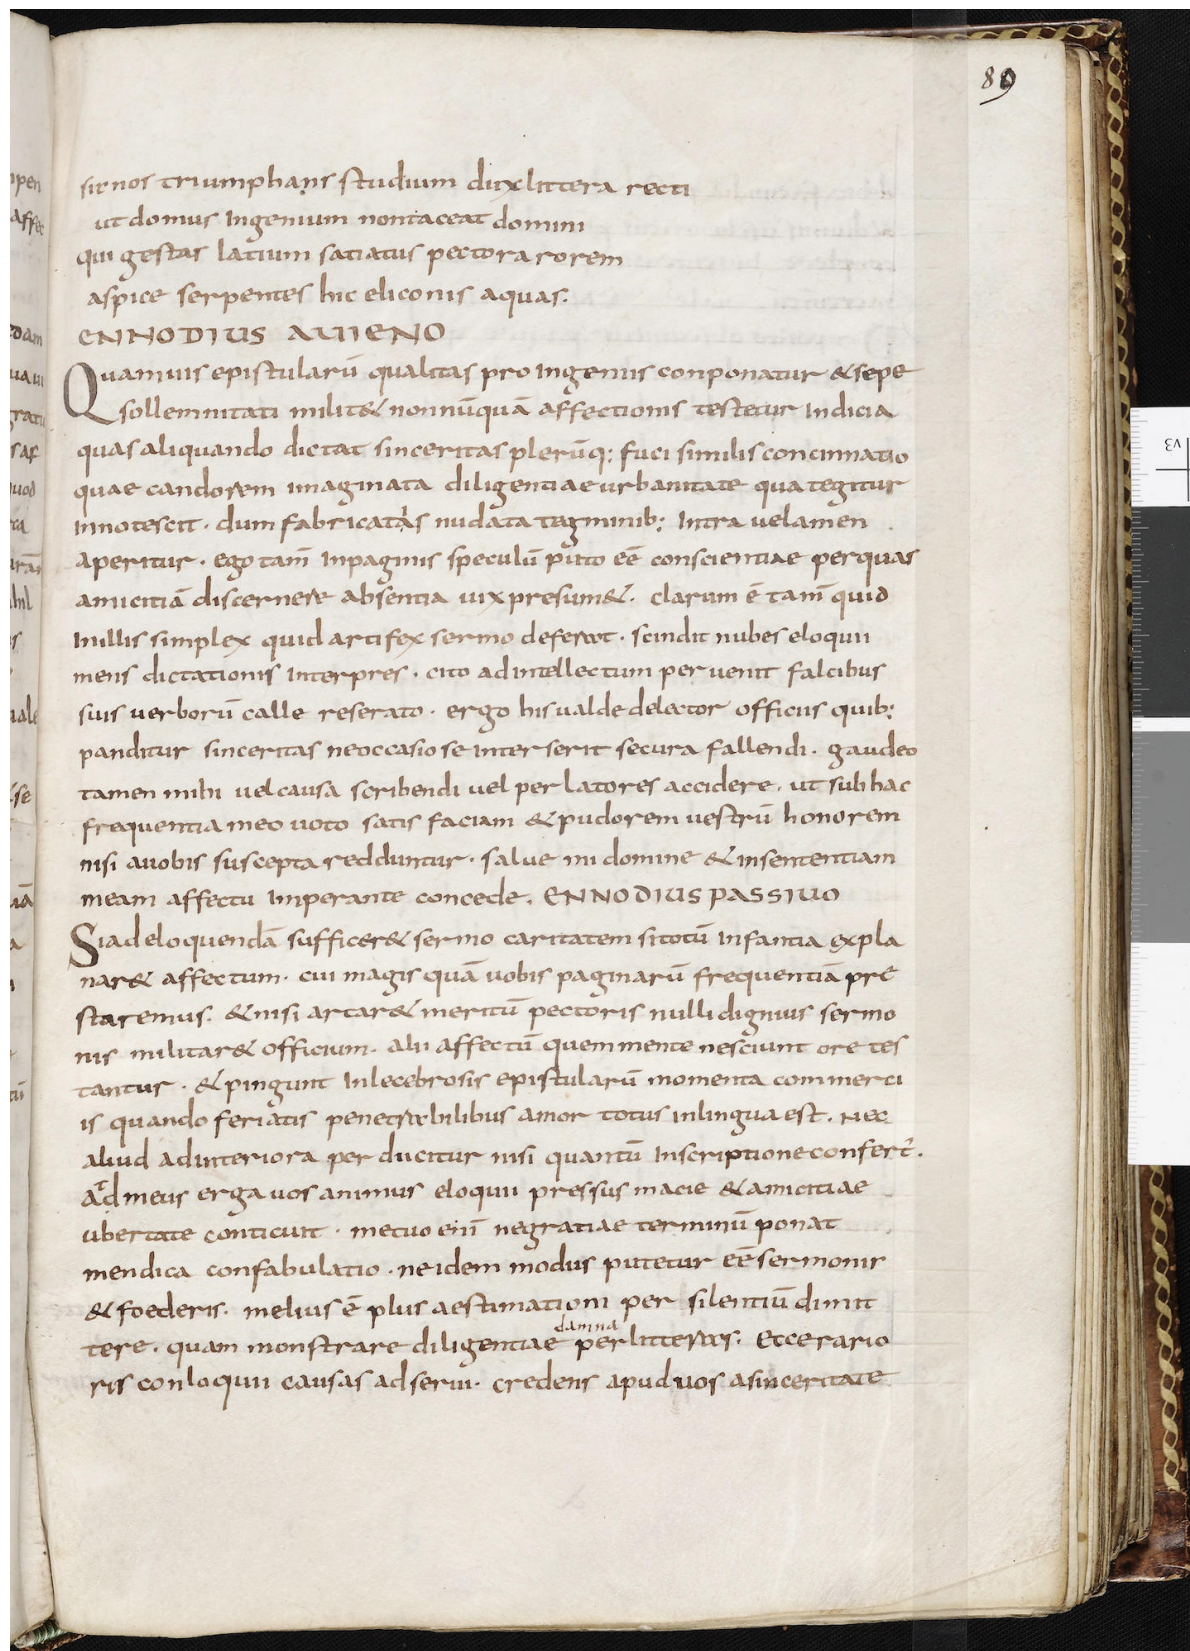 89
sit nos triumphans studium dux littera recti
ut domus Ingenium non taceat domini
qui gestas latium satiatus pectora rorem
aspice serpentes hic eliconis aquas.
ENNODIUS AUIENO
Quamuis epistularū qualitas pro Ingeniis conponatur & sepe
sollemnitati milit& nonnūquā affectionis testetur Indicia
quas aliquando dictat sinceritas plerūq; fuci similis concinnatio
quae candorem imaginata diligentiae urbanitate qua tegitur
Innotescit · dum fabricatas nudata tegminib; Intra uelamen
aperitur · ego tam̄ Inpaginis speculū puto eē conscientiae per quas
amicitiā discernere absentia uix presum& · clarum ē tam̄ quid
Inillis simplex quid artifex sermo deferat · scindit nubes eloquii
mens dictationis Interpres · cito ad intellectum peruenit falcibus
suis uerborū calle reserato · ergo his ualde delector officiis quib;
panditur sinceritas ne occasio se inter serit secura fallendi · gaudeo
tamen mihi uel causa scribendi uel perlatores accidere · ut sub hac
frequentia meo uoto satis faciam & pudorem uestrū honorem
nisi auobis suscepta redduntur · salue mi domine & insententiam
meam affectu Imperante concede · ENNODIUS PASSIUO
Si ad eloquendā sufficer& sermo caritatem si totū Infantia expla
nar& affectum · cui magis quā uobis paginarū frequentiā pre
staremus · & nisi artar& meritū pectoris nulli dignius sermo
nis militar& officium · alii affectū quem mente nesciunt ore tes
tantur · & pingunt Inlecebrosis epistularū momenta commerci
is quando feriatis penetrabilibus amor totus inlingua est · Nec
aliud adinteriora per ducitur nisi quantū Inscriptione confert ·
At meus erga uos animus eloquii pressus macie & amicitiae
ubertate conticuit · metuo enī ne gratiae terminū ponat
mendica confabulatio · ne idem modus putetur eē sermonis
& foederis · melius ē plus aestimationi per silentiū dimit
tere · quam monstrare diligentiae damna per litteras · Ecce rario
ris conloquii causas ad serui · credens apud uos asinceritate